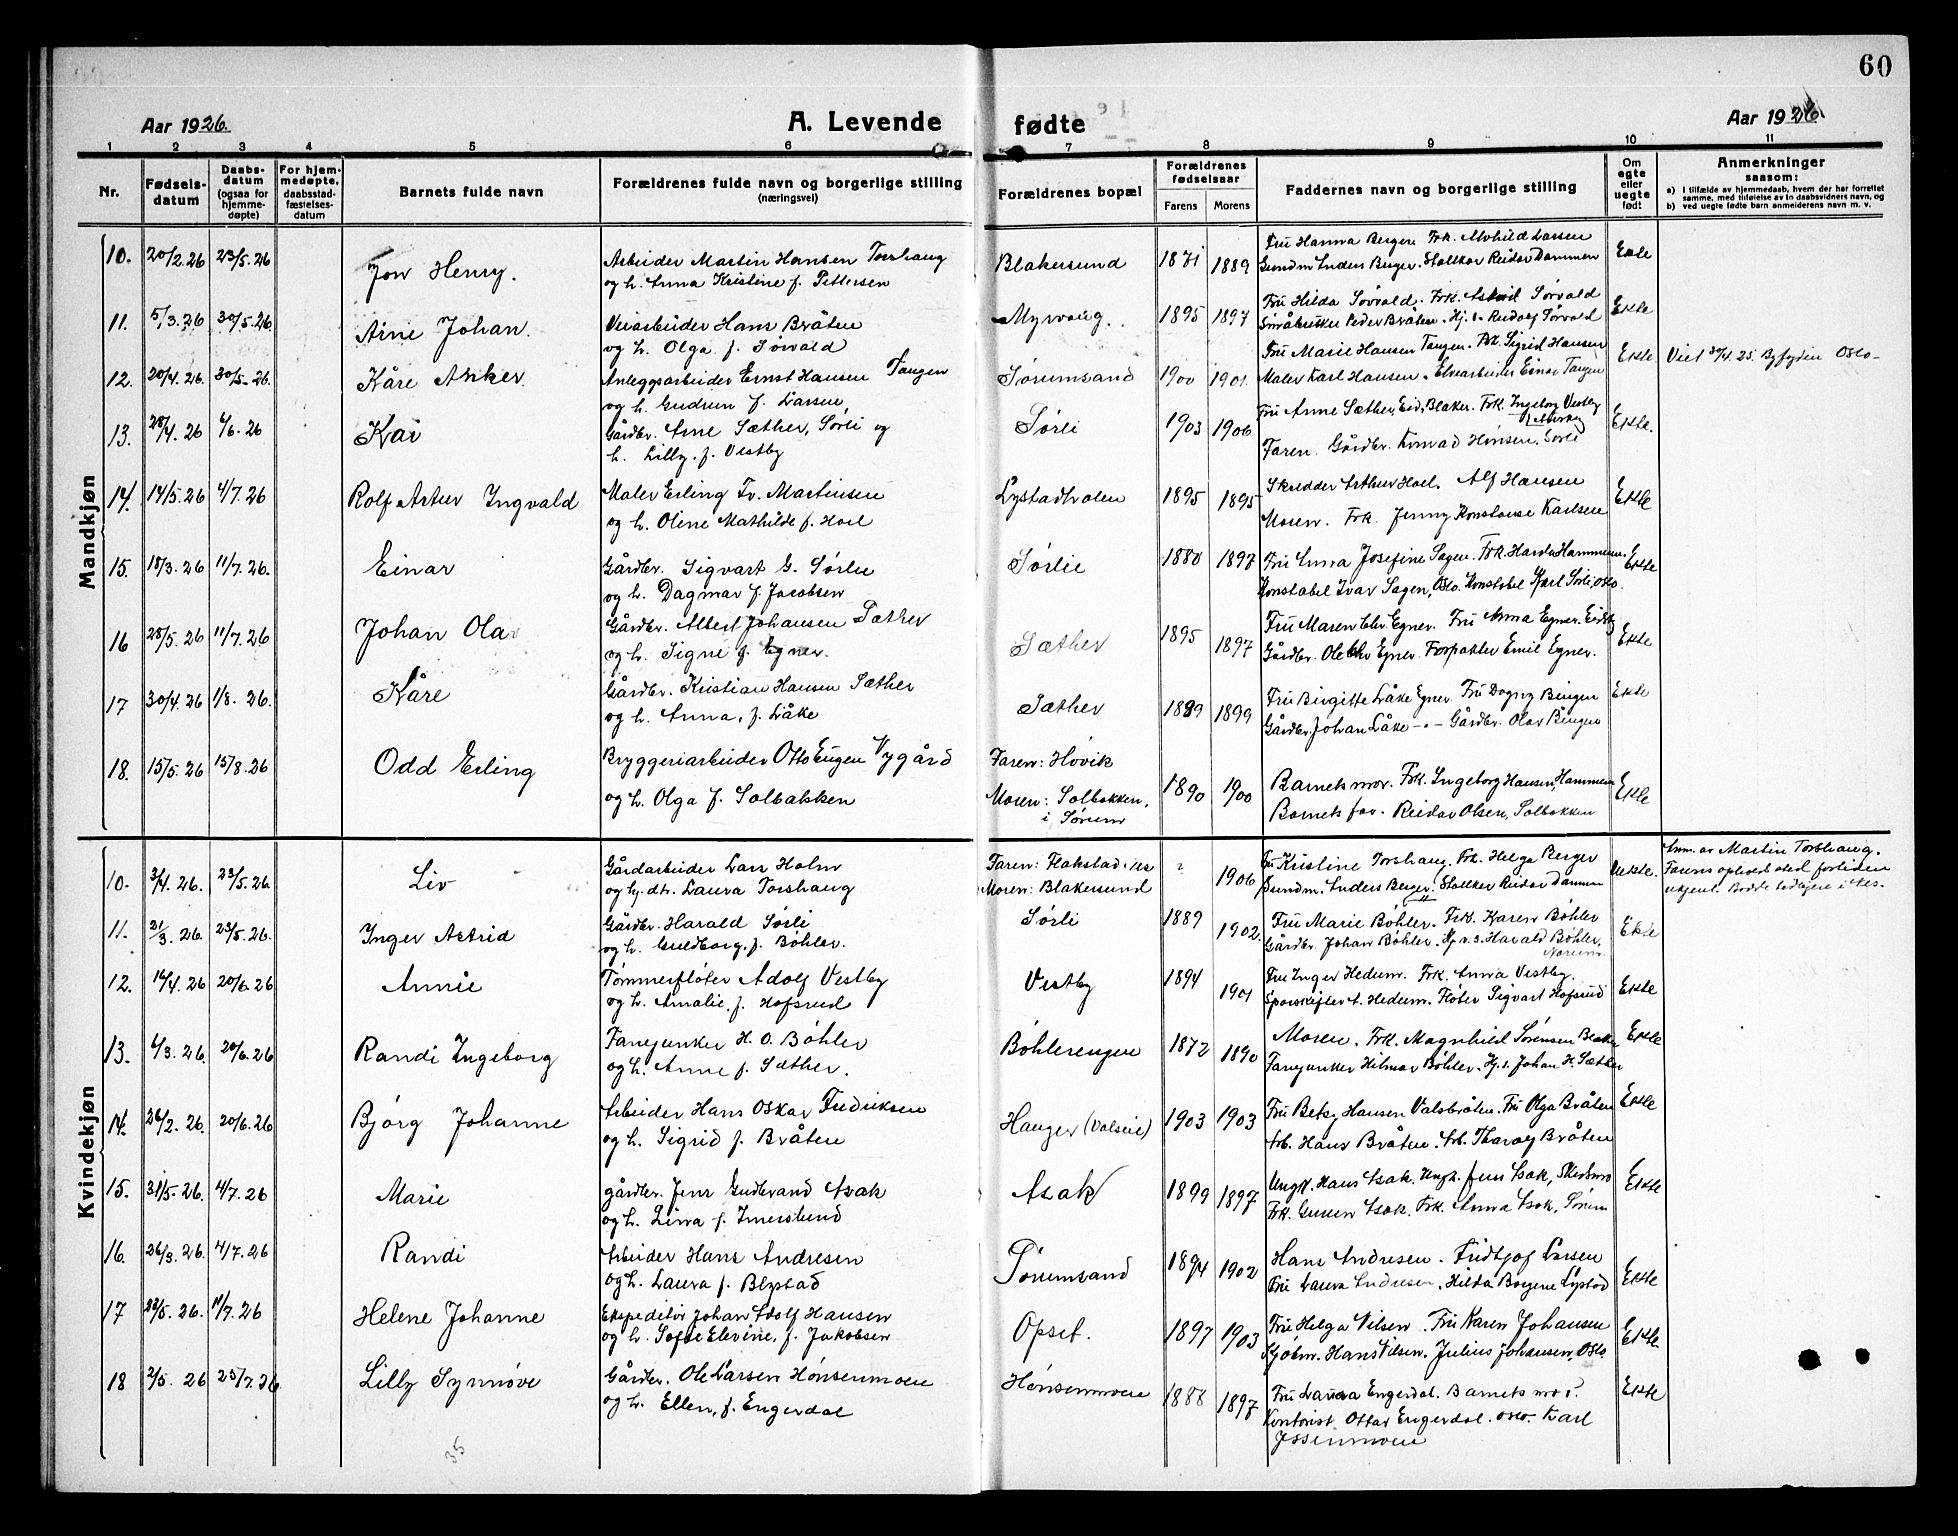 60
Aar 1926.
A. Levende fødte
Aar 1926
1 2 3 4 5 6 7 8 9 10 11
Nr.
Fødsels-datum
Daabs-datum (ogsaa for hjemme-døpte)
For hjem-medøpte, daabsstad-fæstelses-datum
Barnets fulde navn
Forældrenes fulde navn og borgerlige stilling (næringsvei)
Forældrenes bopæl
Forældrenes fødselsaar
Farens Morens
Faddernes navn og borgerlige stilling
Om egte eller uegte født
Anmerkninger saasom:
a) I tilfælde av hjemmedaab, hvem der har forrettet samme, med tilføielse av to daabsvidners navn, og
b) ved uegte fødte barn anmelderens navn m. v.
Mandkjøn
10. 20/2.26 23/5.26 Jon Henry. Arbeider Martin Hansen Torshaug Blakersund 1871 1889 Fru Hanna Berger Frk. Alvhild Larsen Ekte
og h. Anna Kristine f. Pettersen Gundm. Anders Berger. Stallkar Reidar Dammen
11. 5/3.26 30/5.26. Arne Johan. Veiarbeider Hans Bråten Myrvang. 1895 1897 Fru Hilda Sørvald. Frk. Astrid Sørvald Ekte
og h. Olga f. Sørvald Peder Bråten. Hj. s. Rudolf Sørvald
12. 20/4.26. 30/5.26 Kåre Anker. Anleggsarbeider Ernst Hansen Tangen Sørumsand 1900 1901. Fru Marie Hansen Tangen. Frk. Sigrid Hansen Ekte. Viet 30/4.25. Byfogden Oslo.
og h. Gudrun f. Larsen Maler Karl Hansen. Elvearbeider Einar Tangen
13. 28/4 26 4/6.26 Kai Gårdbr. Arne Sæther, Sørli og Sørli 1903 1906 Fru Anne Sæther, Eid, Blaker. Frk. Ingeborg Vestby Ekte.
h. Lilly, f. Vestby Faren. Gårdbr. Konrad Hønsen, Sørli
14. 14/5.26 4/7.26 Rolf Artur Ingvald Maler Erling Fr. Martinsen Lystadholen 1895 1895 Skredder Arthur Hoel. Alf Hansen Ekte
og h. Oline Mathilde f. Hoel Moren. Frk. Jenny Konstanse Karlsen
15. 18/3.26 11/7.26. Einar Gårdbr. Sigvart G. Sørlie Sørlie 1880 1897 Fru Anna Josefine Sagen. Frk. Harda Hammeren. Ekte
og h. Dagmar f. Jacobsen Konstabel Ivar Sagen, Oslo. Konstabel Karl Sørli, Oslo.
16 28/5.26 11/7.26 Johan Olav Gårdbr. Albert Johansen Sæther Sæther 1895 1897 Fru Maren Chr. Egner. Fru Anna Egner. Ekte
og h. Signe f. Egner. Gårdbr. Ole Chr Egner. Forpakter Emil Egner.
17 30/4.26 1/8.26. Kåre Gårdbr. Kristian Hansen Sæther Sæther 1889 1899 Fru Birgitte Låke Egner. Fru Dagny Bingen Ekte
og h. Anna, f. Låke Gårdbr. Johan Låke -"- Gårdbr. Olav Bingen
18. 15/5.26 15/8.26 Odd Erling Bryggeriarbeider Otto Eugen Nygård Faren: Høvik 1890 1900 Barnets mor. Frk. Ingeborg Hansen, Hammeren Ekte
og h. Olga f. Solbakken Moren: Solbakken, i Sørum Barnets far. Reidar Olsen, Solbakken
Kvindekjøn
10. 3/4.26. 23/5.26. Liv Gårdarbeider Lars Holm Faren: Flakstad, Nes ? 1906 Fru Kristine Torshaug. Frk. Helga Berger Uekte. Anm. av Martin Torshaug.
og hj. dtr. Laura Torshaug Moren: Blakersund Gundm. Anders Berger. Stallkar Reidar Dammen Farens opholdssted fortiden ukjent. Bodde tidligere i Nes.
11. 21/3.26. 23/5.26. Inger Astrid Gårdbr. Harald Sørli Sørli 1889 1902. Fru Marie Bøhler. Frk. Karen Bøhler Ekte
og h. Guldborg, f. Bøhler. Gårdbr. Johan Bøhler. Harald Bøhler, Norum
12. 14/4.26 20/6.26 Annie Tømmerfløter Adolf Vestby Vestby 1894 1901 Fru Inger Hedum. Frk. Anna Vestby. Ekte
og h. Amalie, f. Hofsrud Sporskifter A. Hedum. Fløter Sigvart Hofsrud
13. 6/3.26. 20/6.26 Randi Ingeborg Fanejunker H. O. Bøhler Bøhlerengen 1872 1890 Moren. Frk. Magnhild Sørensen Blaker Ekte
og h. Anne f. Sæther. Fanejunker Hilmar Bøhler. Hj. s. Johan H. Sæther
14. 26/2.26. 20/6.26 Bjørg Johanne Arbeider Hans Oskar Fredriksen Hauger (Valseie) 1903 1903 Fru Betsy Hansen Valsbråten. Fru Olga Bråten Ekte
og h. Sigrid f. Bråten Arb. Hans Bråten. Arb. Tharalf Bråten
15. 31/5.26. 4/7.26 Marie gårdbr. Jens Gudbrand Asak Asak 1899 1897 Ungk. Hans Asak. Ungk. Jens Asak, Skedsmo Ekte
og h. Lina f. Imerslund Frk. Gunvor Asak. Frk. Anna Asak, Sørum
16. 26/3.26. 4/7.26 Randi Arbeider Hans Andresen Sørumsand 1894 1902 Hans Andresen. Fridtjof Larsen Ekte
og h. Laura f. Blystad Fru Laura Andresen. Hilda Borgene Lystad
17 22/5.26. 11/7.26 Helene Johanne Ekspeditør Johan Adolf Hansen Opset. 1897 1903 Fru Helga Nilsen. Fru Karen Johansen Ekte
og h. Sofie Elevine, f. Jakobsen Sjøm. Hans Nilsen. Julius Johansen, Oslo.
18 2/5.26 25/7.26 Lilly Synnøve Gårdbr. Ole Larsen Hønsenmoen Hønsenmoen 1888 1897 Fru Laura Engerdal. Barnets mor. Ekte
og h. Ellen, f. Engerdal Kontorist Ottar Engerdal. Oslo. Karl Jessenmoen
35